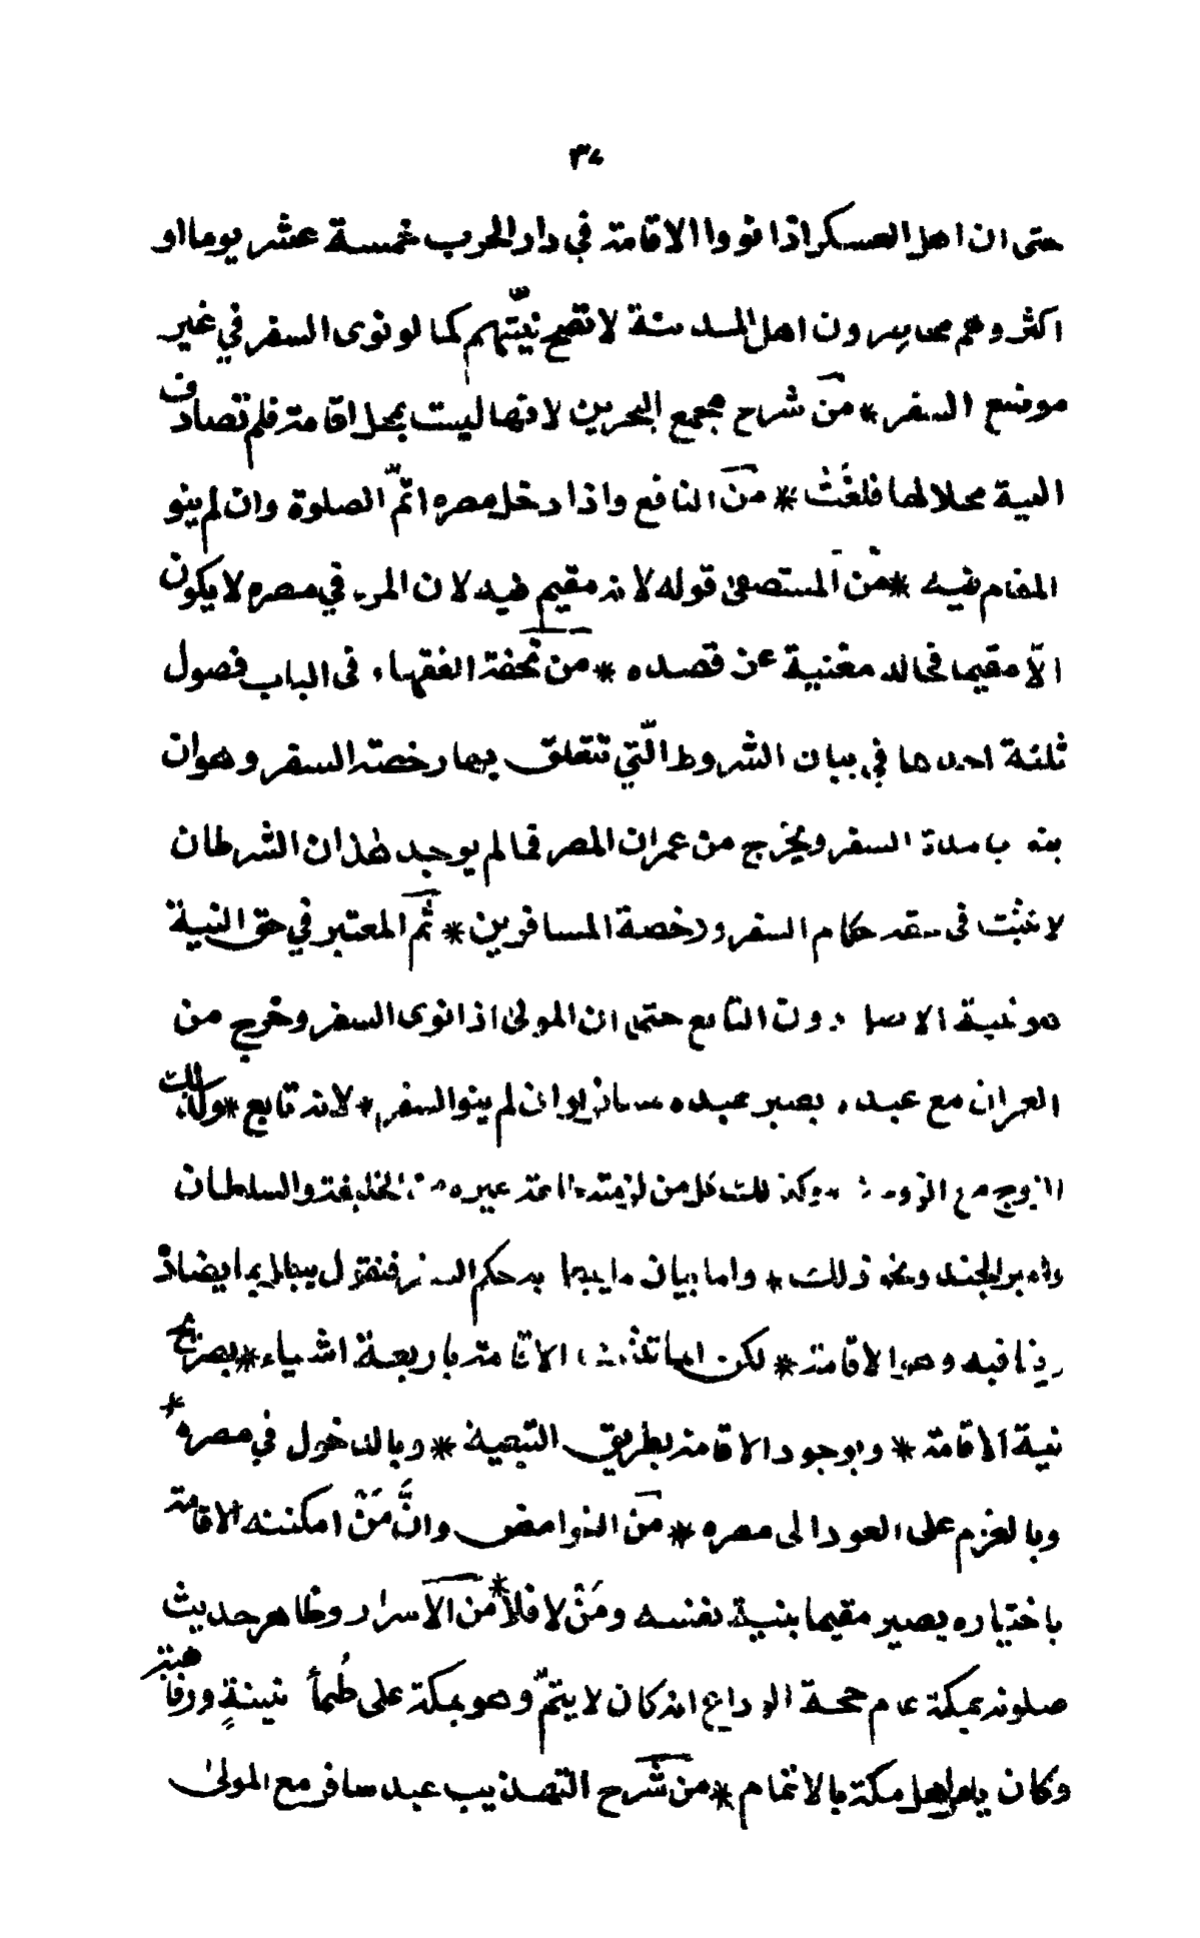 ٣٤
حتى ان اهل العسكر اذا نووا الاقامة في دار الحرب خمسة عشر يوما او
اكثر وهم محاصرون اهل المدينة لا تصح نيّتهم كما لو نوى السفر في غير
موضع السفر * من شرح مجمع البحرين لانها ليست بمحل اقامة فلم تصادف
النية محلا لها فلغَتْ * من النافع واذا دخل مصره اتمّ الصلوة وان لم ينو
المقام فيه * من المستصفى قوله لانه مقيم فيه لان المرء في مصره لا يكون
الّا مقيما فحاله مغنية عن قصده * من تحفة الفقهاء في الباب فصول
ثلثة احدها في بيان الشروط الّتي تتعلق بها رخصة السفر وهو ان
مدة السفر ويخرج من عمران المصر فما لم يوجد هذان الشرطان
لا تثبت في حقه احكام السفر ورخصة المسافرين * ثم المعتبر في حق النية
هو نية الاصل دون التابع حتى ان المولى اذا نوى السفر وخرج من
العمران مع عبده يصير عبده مسافرا وان لم ينو السفر * لانه تابع * وكذلك
الزوج مع الزوجة * وكذلك كل من لزمته طاعة غيره من الخليفة والسلطان
وامير الجند ونحو ذلك * واما بيان ما يبطل به حكم السفر فنقول يبطل بما يضاده
وينافيه وهو الاقامة * لكن انما تثبت الاقامة باربعة اشياء * بصريح
نية الاقامة * وبوجود الاقامة بطريق التبعية * وبالدخول في مصره *
وبالعزم على العود الى مصره * من الغوامض وانَّ مَنْ امكنته الاقامة
باختياره يصير مقيما بنية نفسه ومَنْ لا فلا * من الاسرار وظاهر حديث
صلوته بمكة عام حجة الوداع انه كان لا يتمّ وهو بمكة على طُمأنينةٍ ورفاهية
وكان يامر اهل مكة بالاتمام * من شرح التهذيب عبد سافر مع المولى